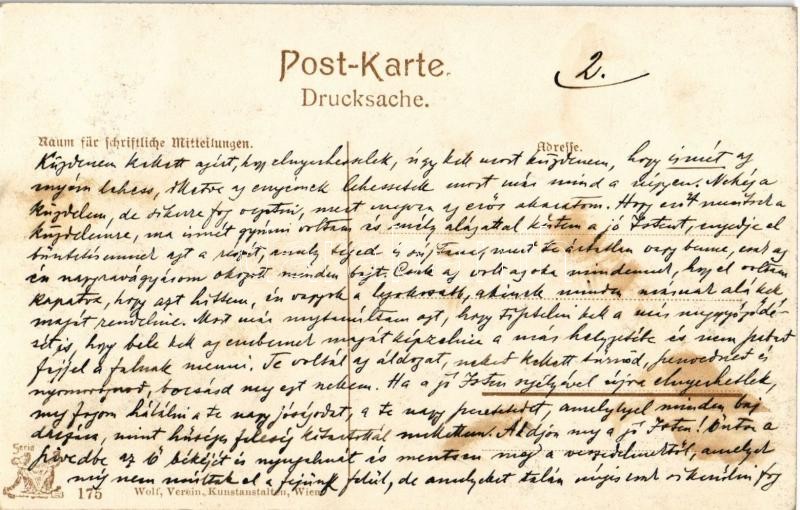 Post-Karte.
Drucksache.
2.
Raum für schriftliche Mitteilungen.
Adresse.
Küzdenem kellett azért, hogy elnyerhesselek, úgy kell most küzdenem, hogy ismét az
enyém lehess, illetve az enyémek lehessetek most már mind a négyen. Nehéz a
küzdelem, de sikerre fog vezetni, mert megvan az erős akaratom. Hogy erőt merítsek a
küzdelemre, ma ismét gyónni voltam és mély alázattal kértem a jó Istent, engedje el
büntetésemnek azt a részét, amely téged is mert Te ártatlan vagy benne, csak az
én nagyravágyásom okozott minden bajt. Csak az volt az oka mindennek, hogy el voltam
kapatva, hogy azt hittem, én vagyok a legokosabb, akinek minden másnak alá kell
magát rendelnie. Most már megtanultam azt, hogy tisztelni kell a más meggyőződé-
sét is, hogy bele kell az embernek magát képzelnie a más helyzetébe és nem lehet
fejjel a falnak menni. Te voltál az áldozat, neked kellett tűrnöd, szenvedned és
nyomorognod, bocsásd meg ezt nekem. Ha a jó Isten segélyével újra elnyerhetlek,
meg fogom hálálni a te nagy jóságodat, a te nagy szeretetedet, amelylyel minden baj
dacára, mint hűséges feleség kitartottál mellettem. Áldjon meg a jó Isten! Öntse a
szivedbe az Ő békéjét és nyugalmát és mentsen meg a veszedelmektől, amelyek
még nem múltak el a fejünk felül, de amelyeket talán mégis csak sikerülni fog
Serie
175
Wolf, Verein. Kunstanstalten, Wien